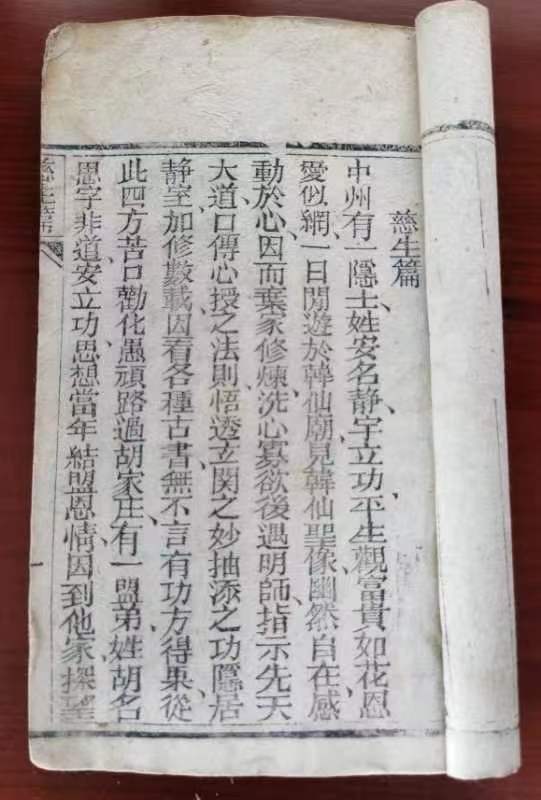 慈生篇
中州有一隱士姓安名静字立功平生觀富貴如花恩
愛似網一日閒遊於韓仙廟見韓仙聖像幽然自在感
動於心因而棄家修煉洗心寡欲後遇明師指示先天
大道口傳心授之法則悟透玄関之妙抽添之功隱居
静室加修數載因看各種古書無不言有功方得果從
此四方苦口勸化愚頑路過胡家庄有一盟弟姓胡名
思字非道安立功思想當年結盟恩情因到他家探望